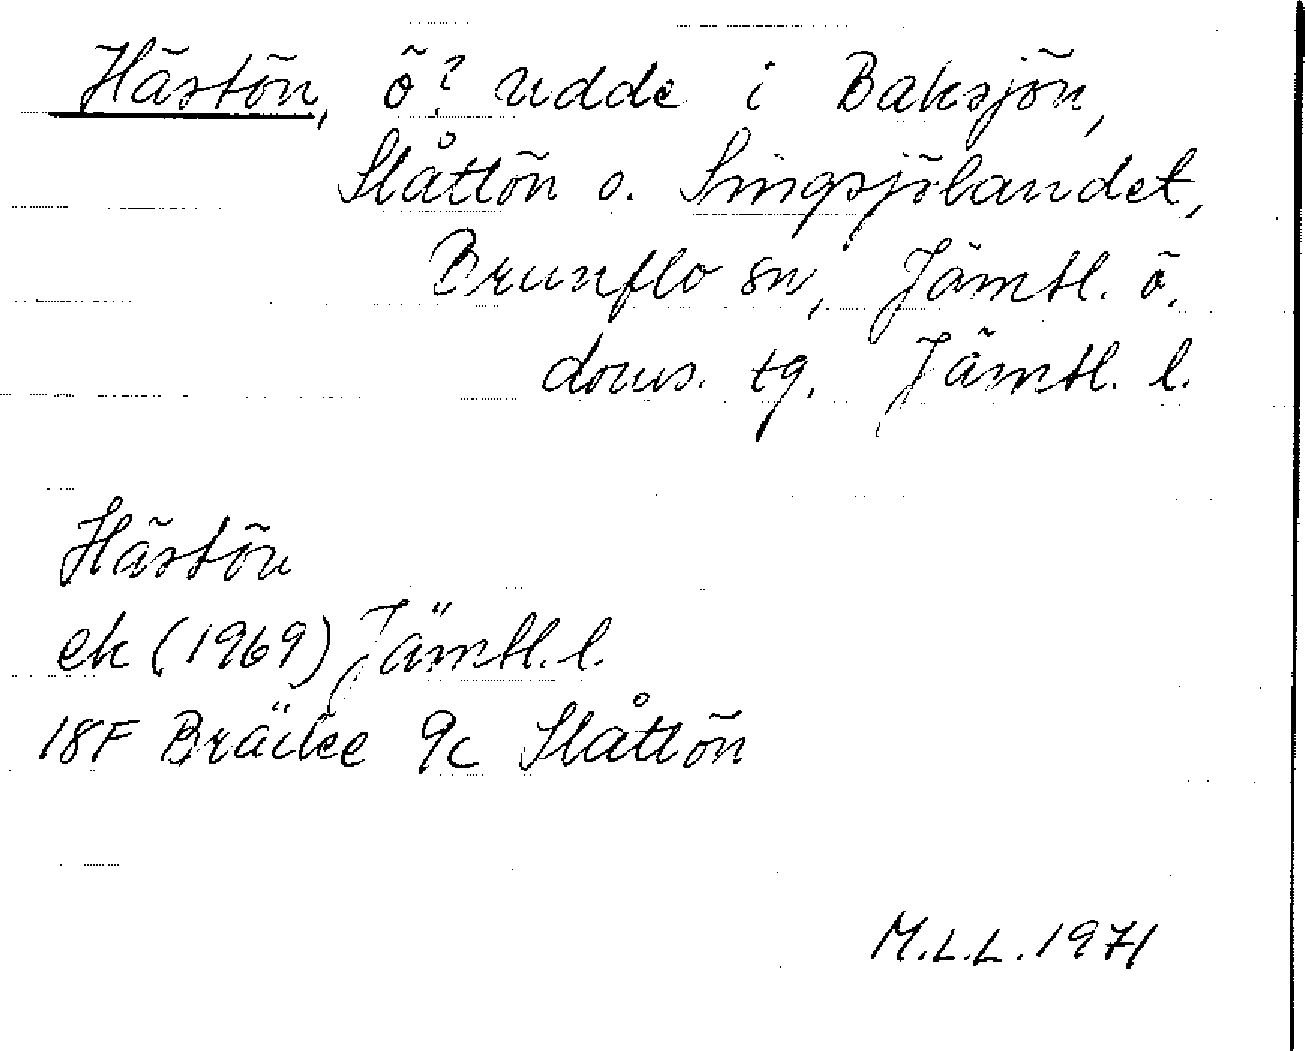 Hästön, ö? udde i Baksjön,
Slåttön o. Singsjölandet,
Brunflo sn, Jämtl. ö.
doms. tg. Jämtl. l.
Hästön
ek (1969) Jämtl. l.
18F Bräcke 9c Slåttön
M.L.L. 1971